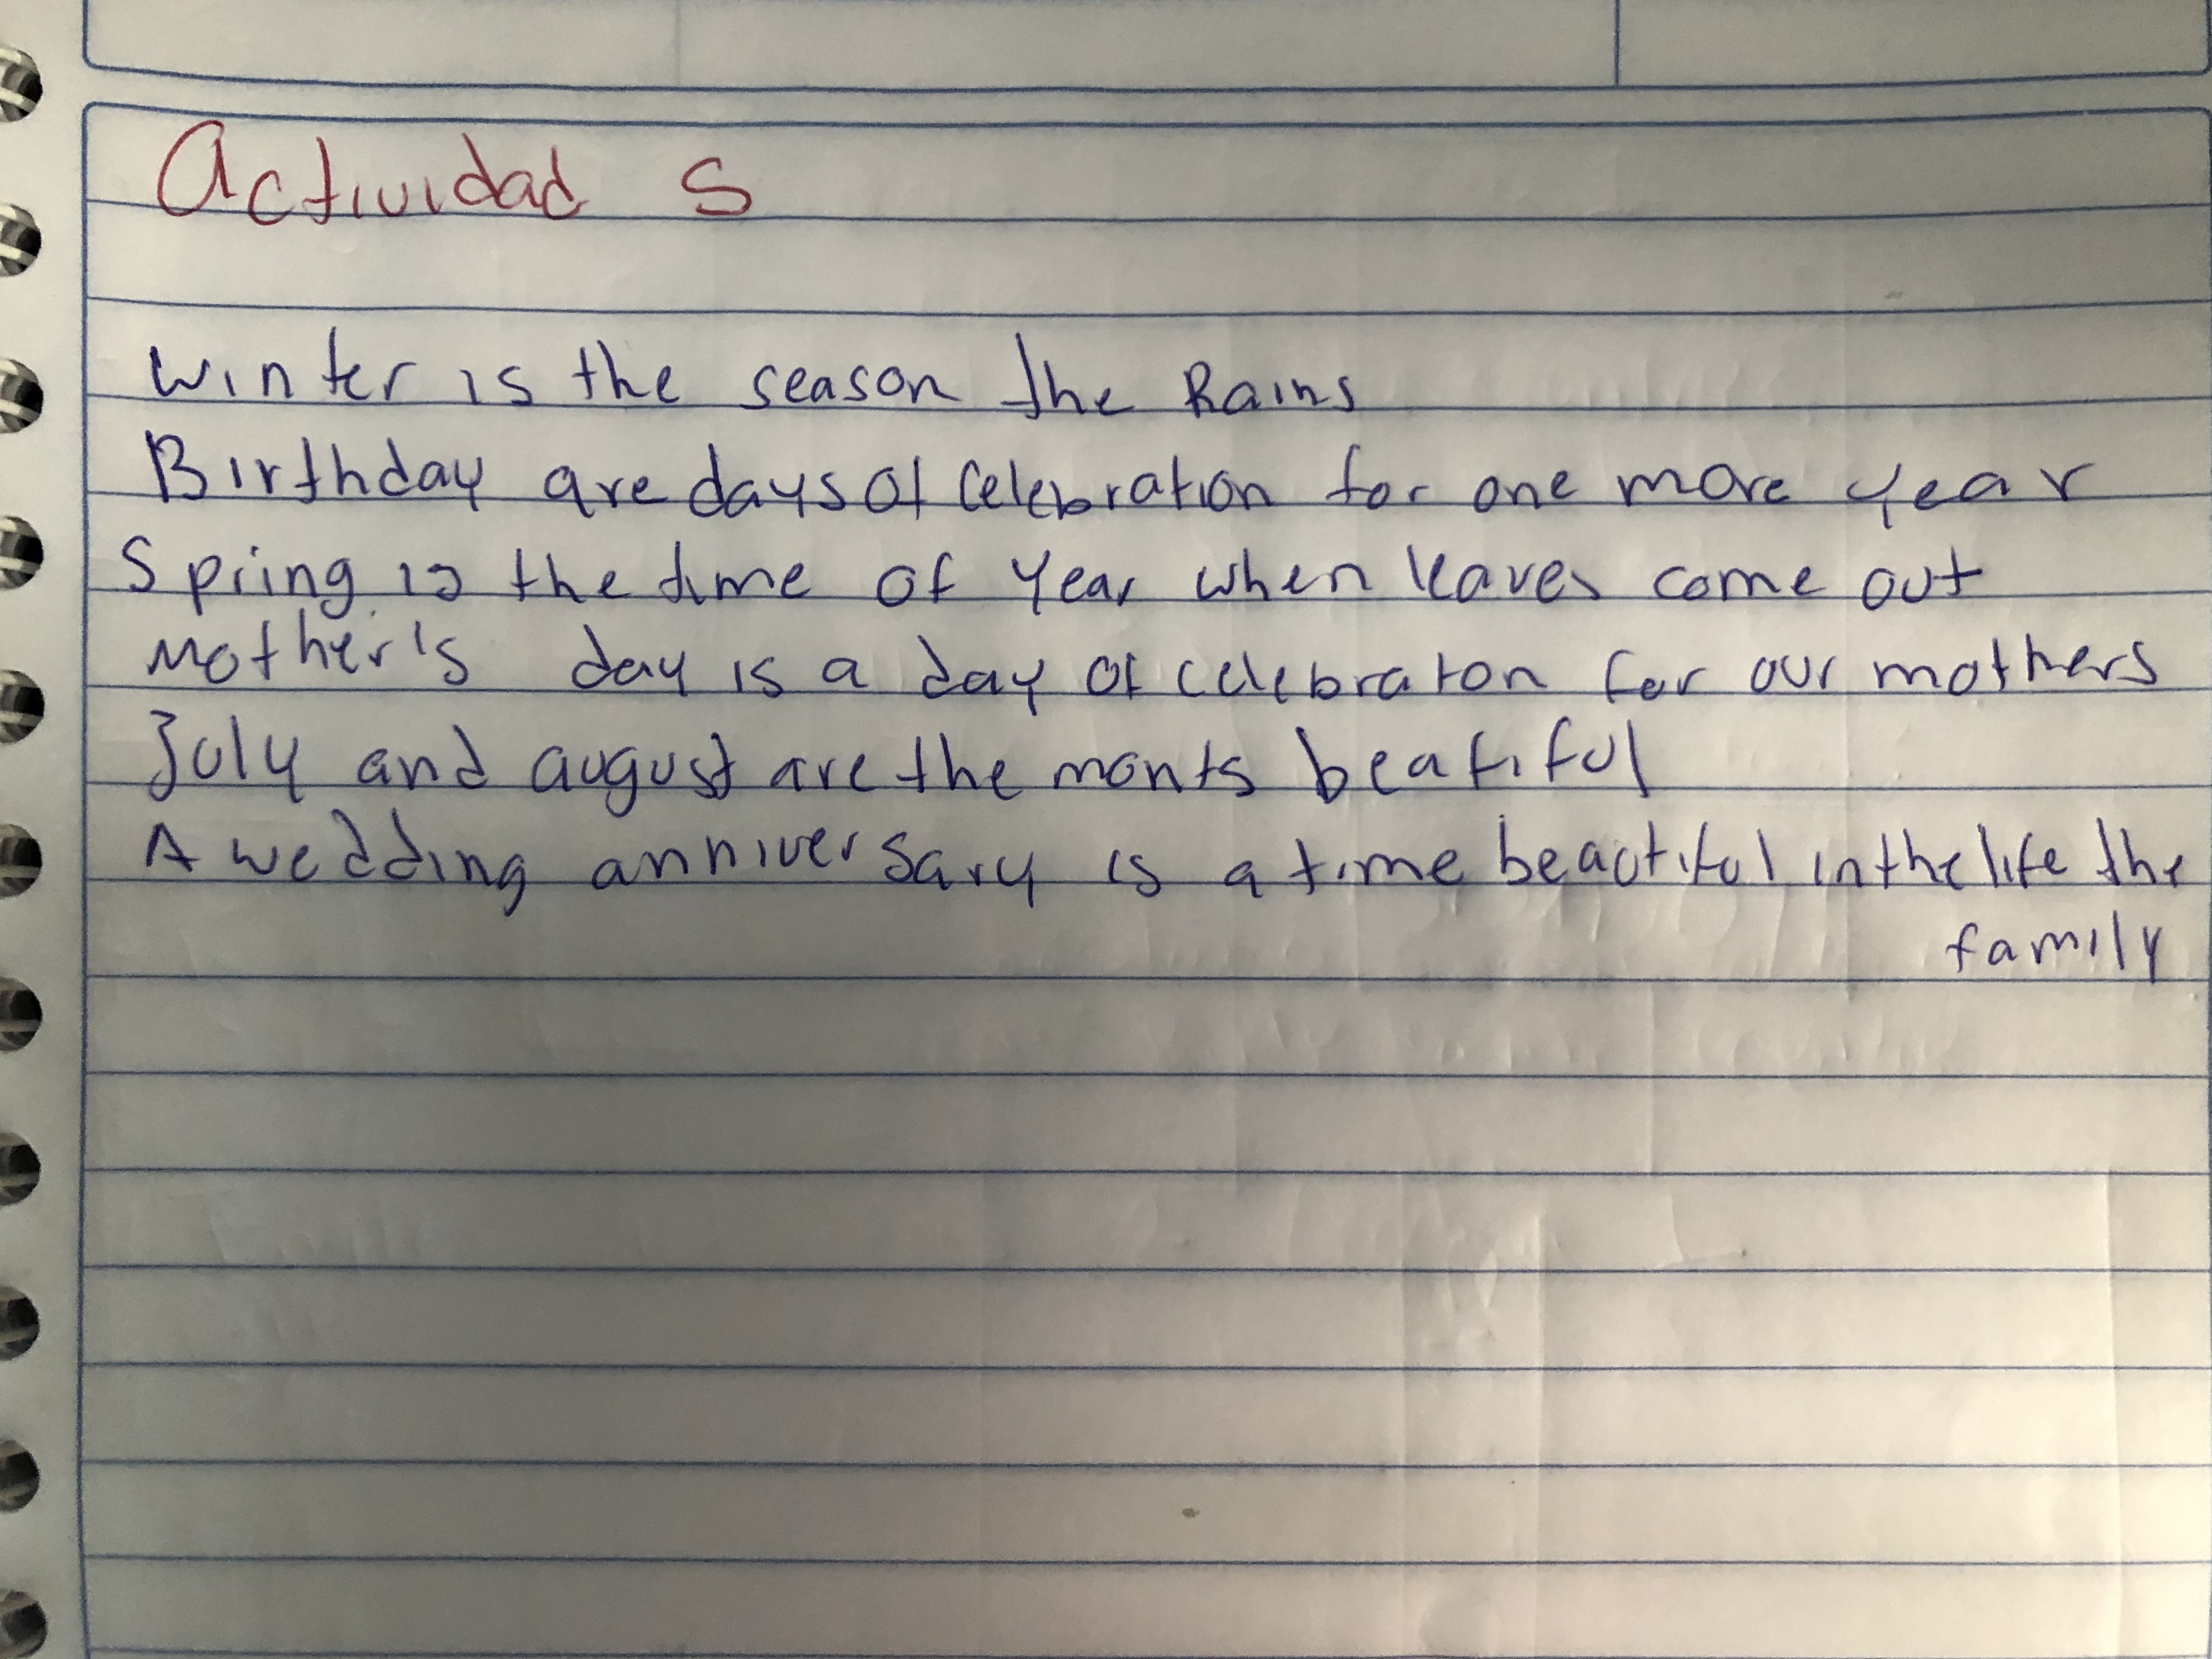 Actividad 5
Winter is the season the Rains
Birthday are days of celebration for one more year
Spring is the time of Year when leaves come out
Mother's day is a day of celebraton for our mothers
July and august are the monts beatiful
A wedding anniversary is a time beautiful in the life the
family